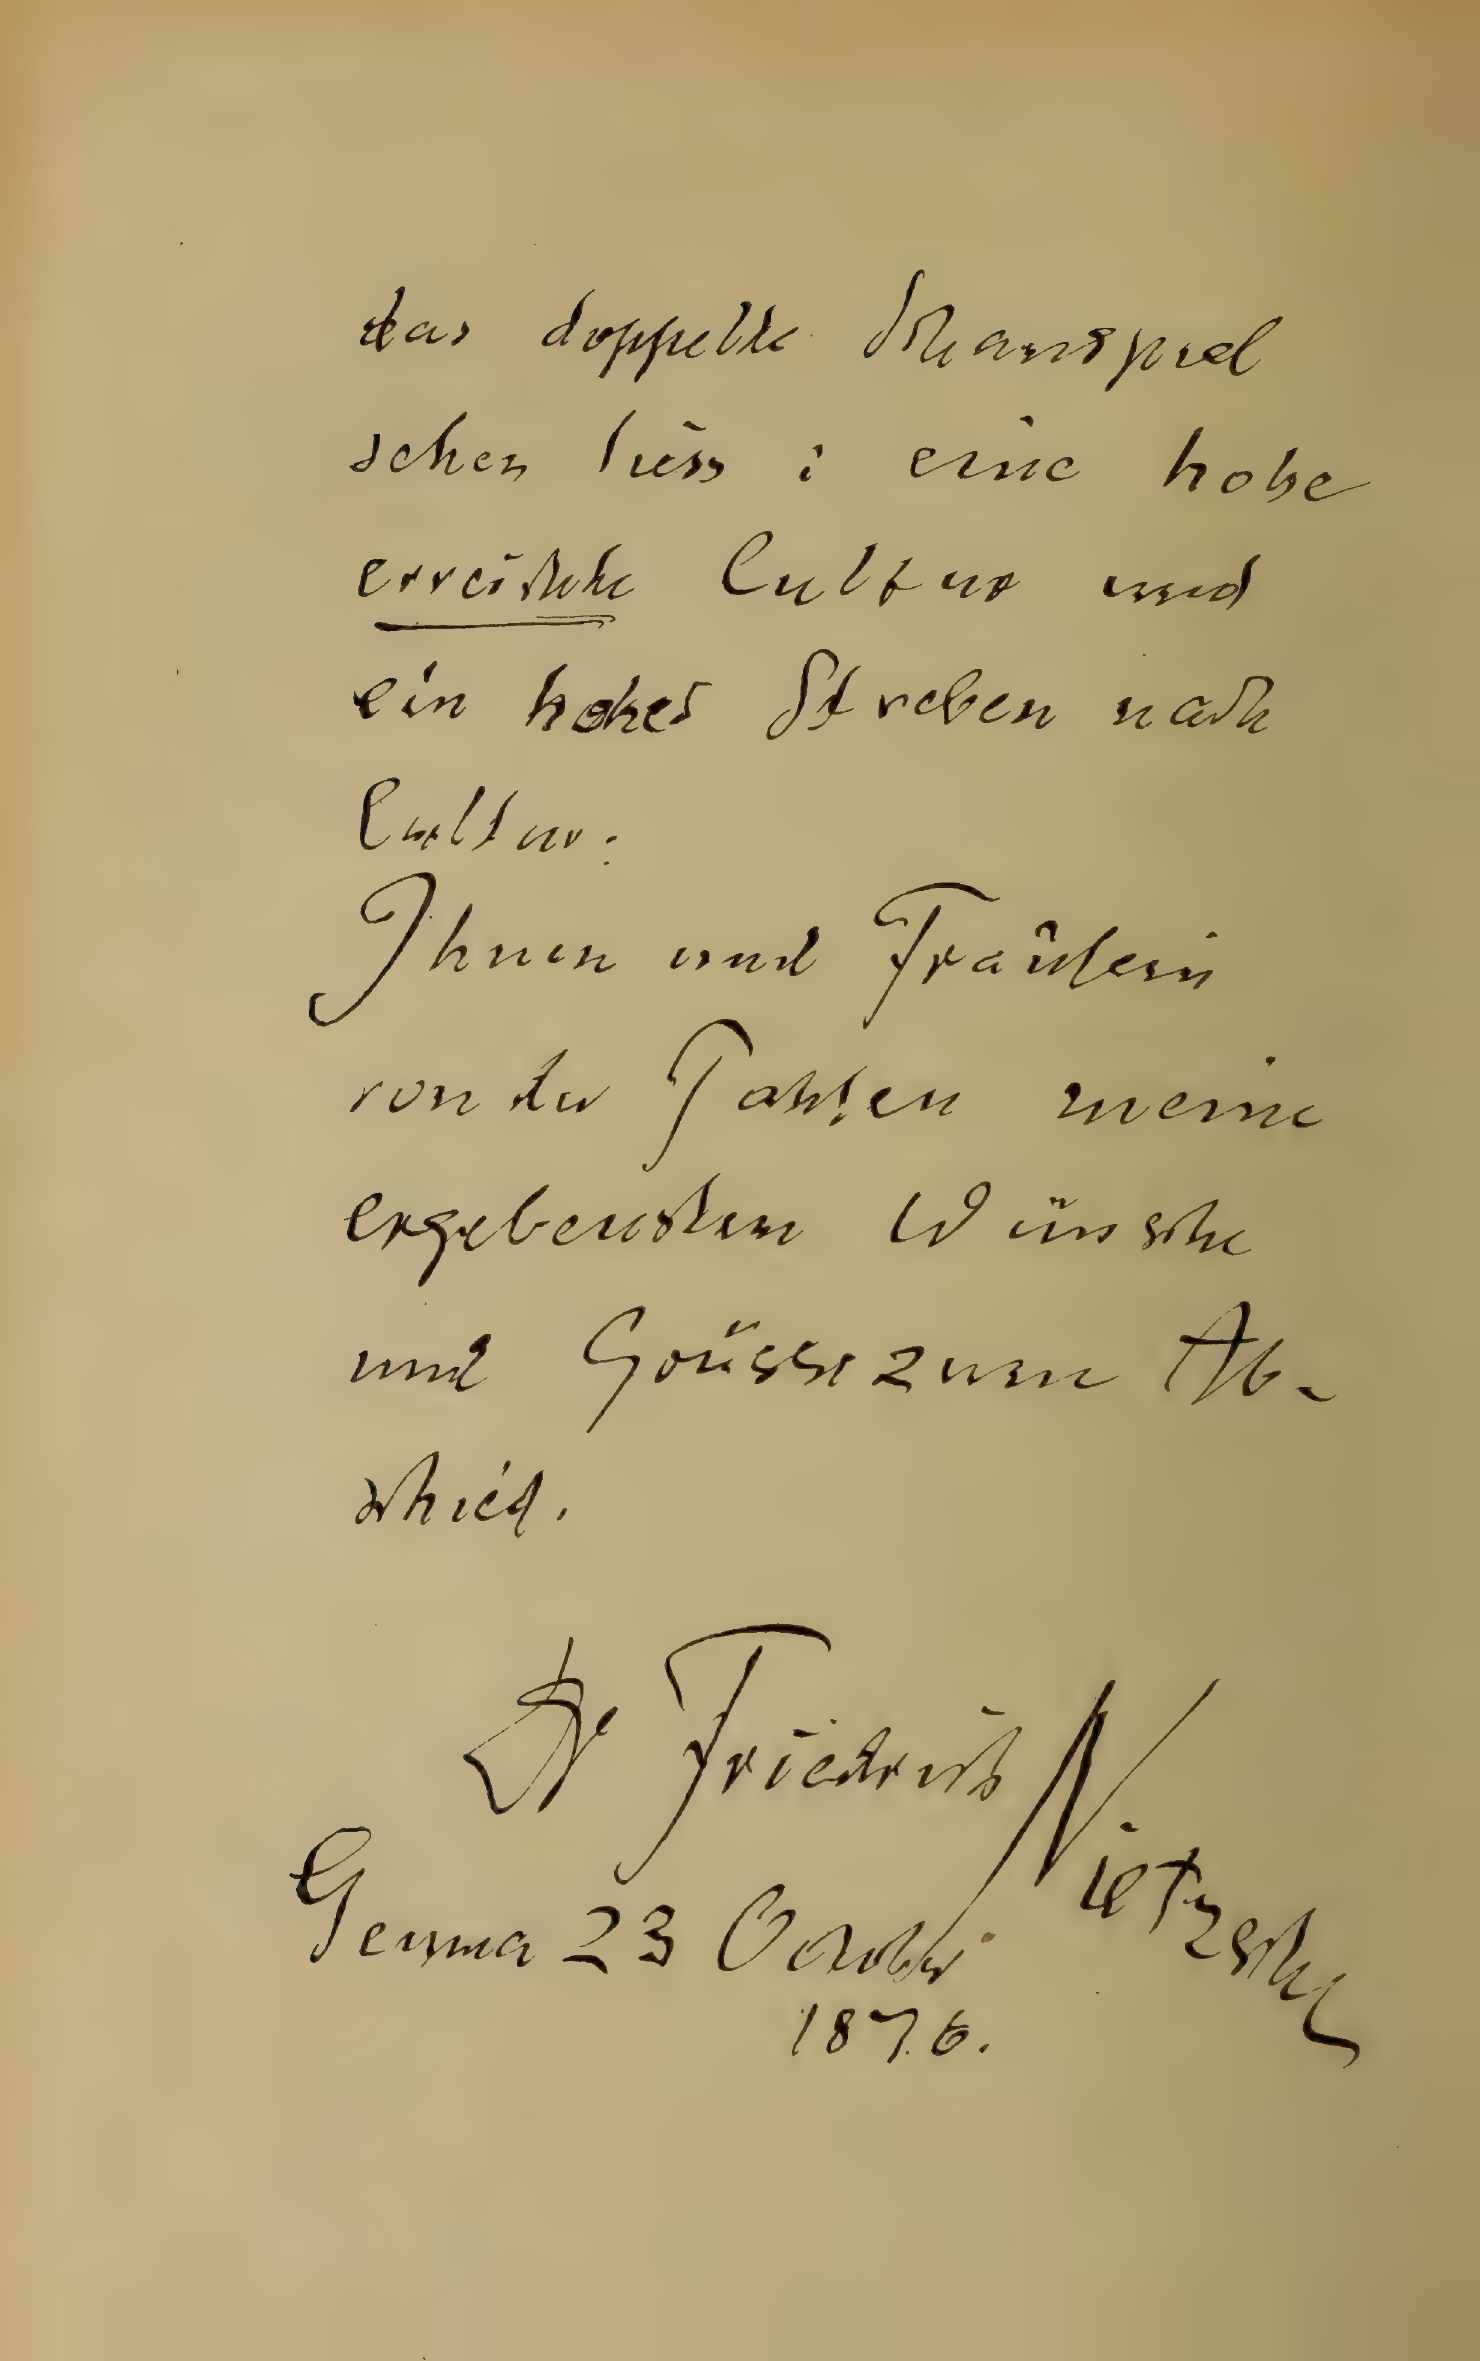 das doppelte Schauspiel
sehen liess : eine hohe
erreichte Cultur und
ein hohes Streben nach
Cultur.
Ihnen und Fräulein
von der Pahlen meine
ergebensten Wünsche
und Grüsse zum Ab-
schied.
Dr Friedrich Nietzsche
Genua 23 October
1876.